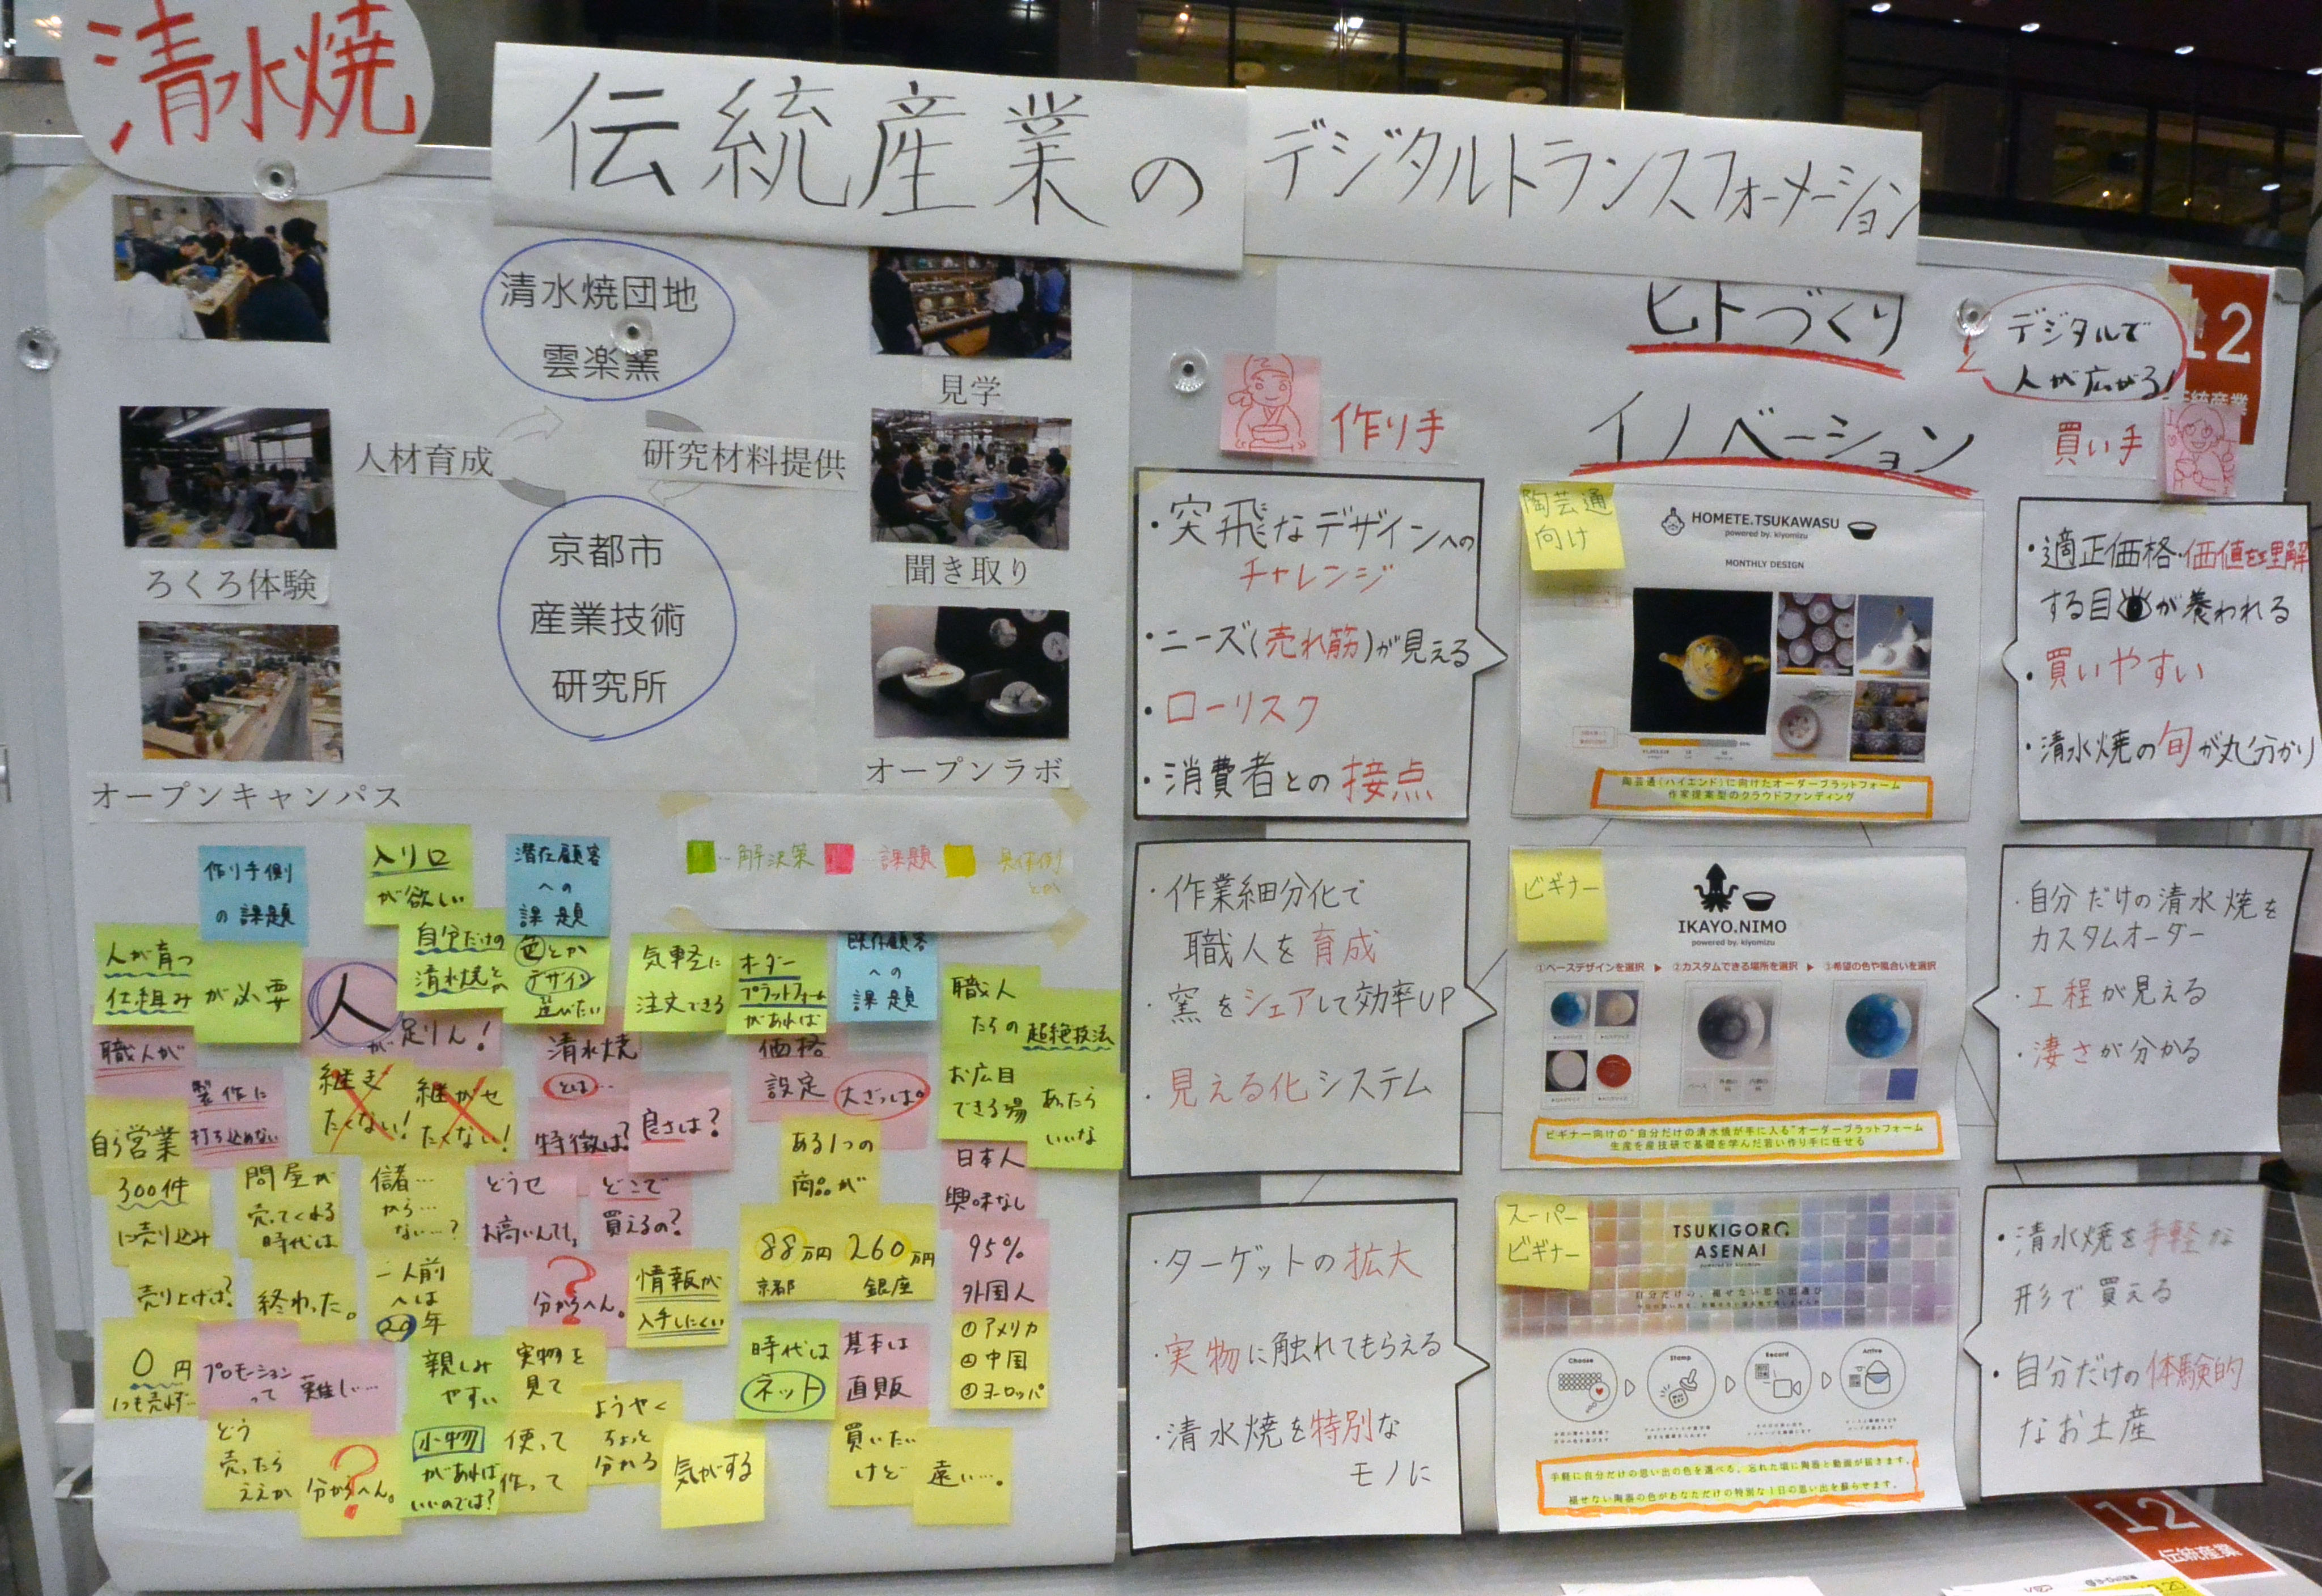 清水焼
伝統産業の
デジタルトランスフォーメーション
清水焼団地
雲楽窯
人材育成
研究材料提供
京都市
産業技術
研究所
ろくろ体験
オープンキャンパス
見学
聞き取り
オープンラボ
解決策
課題
具体例
とか
作り手側
の課題
入り口
が欲しい
潜在顧客
への
課題
人が育つ
仕組みが必要
人が足りん!
自分だけの
清水焼とか
色とか
デザイン
選びたい
気軽に
注文できる
オーダー
プラットフォーム
があれば
既存顧客
への
課題
職人
たちの超絶技法
お広目
できる場
あったら
いいな
職人が
製作に
打ち込めない
継ぎ
たくない!
継がせ
たくない!
清水焼
とは…
特徴は?
良さは?
価格
設定
大ざっぱ。
自ら営業
300件
に売り込み
売り上げは?
0円
1つも売れず…
問屋が
売ってくれる
時代は
終わった。
儲…
から…
ない…?
一人前
へは
20年
どうせ
お高いんでしょ
どこで
買えるの?
分からへん。
情報が
入手しにくい
ある1つの
商品が
88万円
京都
260万円
銀座
日本人
興味なし
95%
外国人
①アメリカ
②中国
③ヨーロッパ
プロモーション
って
難し…
どう
売ったら
ええか
分からへん。
親しみ
やすい
小物
があれば
いいのでは?
実物を
見て
使って
作って
ようやく
ちょっと
分かる
気がする
時代は
ネット
基本は
直販
買いたい
けど
遠い…。
ヒトづくり
イノベーション
デジタルで
人が広がる!
12
伝統産業
作り手
買い手
・突飛なデザインへの
チャレンジ
・ニーズ(売れ筋)が見える
・ローリスク
・消費者との接点
陶芸通
向け
HOMETE.TSUKAWASU
powered by. kiyomizu
MONTHLY DESIGN
陶芸通(ハイエンド)に向けたオーダープラットフォーム
作家提案型のクラウドファンディング
・適正価格・価値を理解
する目が養われる
・買いやすい
・清水焼の旬が丸分かり
・作業細分化で
職人を育成
・窯をシェアして効率UP
・見える化システム
ビギナー
IKAYO.NIMO
powered by. kiyomizu
①ベースデザインを選択 ▶ ②カスタムできる場所を選択 ▶ ③希望の色や風合いを選択
ビギナー向けの"自分だけの清水焼が手に入る"オーダープラットフォーム
生産を産技研で基礎を学んだ若い作り手に任せる
・自分だけの清水焼を
カスタムオーダー
・工程が見える
・凄さが分かる
・ターゲットの拡大
・実物に触れてもらえる
・清水焼を特別な
モノに
スーパー
ビギナー
TSUKIGORO
ASENAI
powered by kiyomizu
自分だけの、褪せない思い出選び
Choose
Stamp
Record
Arrive
手軽に自分だけの思い出の色を選べる、忘れた頃に陶器と動画が届きます。
褪せない陶器の色があなただけの特別な1日の思い出を蘇らせます。
・清水焼を手軽な
形で買える
・自分だけの体験的
なお土産
12
伝統産業